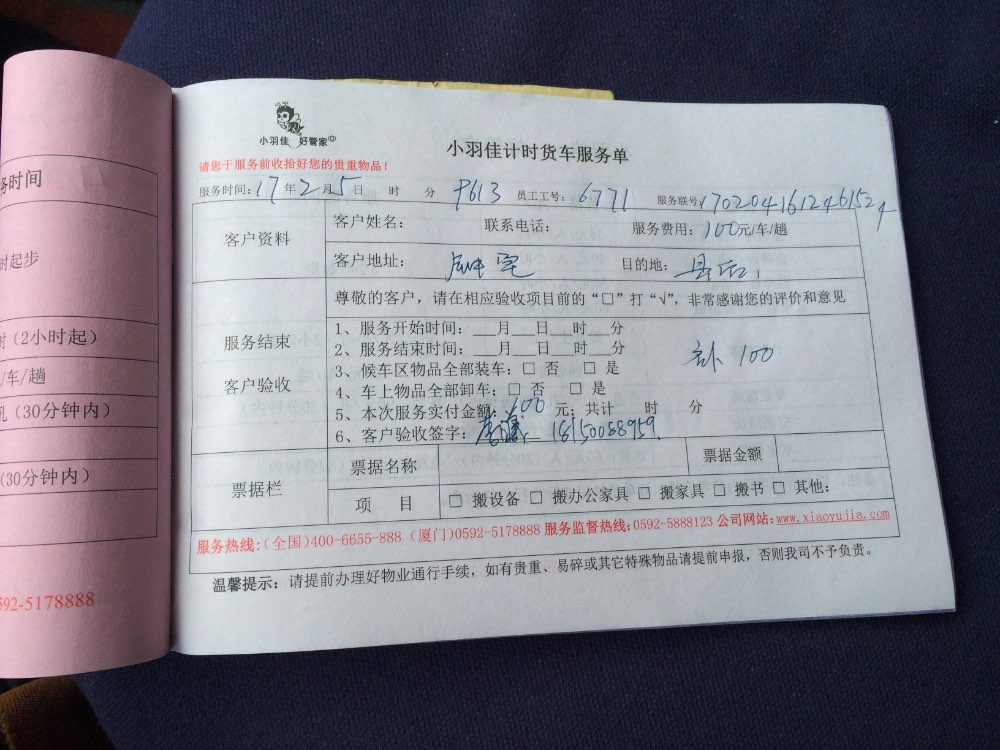 务时间
时起步
时(2小时起)
/车/趟
机(30分钟内)
(30分钟内)
592-5178888
小羽佳 好管家
小羽佳计时货车服务单
请您于服务前收拾好您的贵重物品!
服务时间:17年2月5日 时 分 P613 员工工号: 6771 服务联号 1702041612461524
客户资料
客户姓名: 联系电话: 服务费用: 100元/车/趟
客户地址: 目的地: 县后
尊敬的客户,请在相应验收项目前的“□”打“√”,非常感谢您的评价和意见
服务结束
客户验收
1、服务开始时间:___月___日___时___分
2、服务结束时间:___月___日___时___分
3、候车区物品全部装车:□ 否 □ 是
4、车上物品全部卸车:□ 否 □ 是
补 100
5、本次服务实付金额:100 元;共计 时 分
6、客户验收签字: 18150088959
票据栏
票据名称 票据金额
项 目 □ 搬设备 □ 搬办公家具 □ 搬家具 □ 搬书 □ 其他:
服务热线:(全国)400-6655-888 (厦门)0592-5178888 服务监督热线:0592-5888123 公司网站:www.xiaoyujia.com
温馨提示:请提前办理好物业通行手续,如有贵重、易碎或其它特殊物品请提前申报,否则我司不予负责。